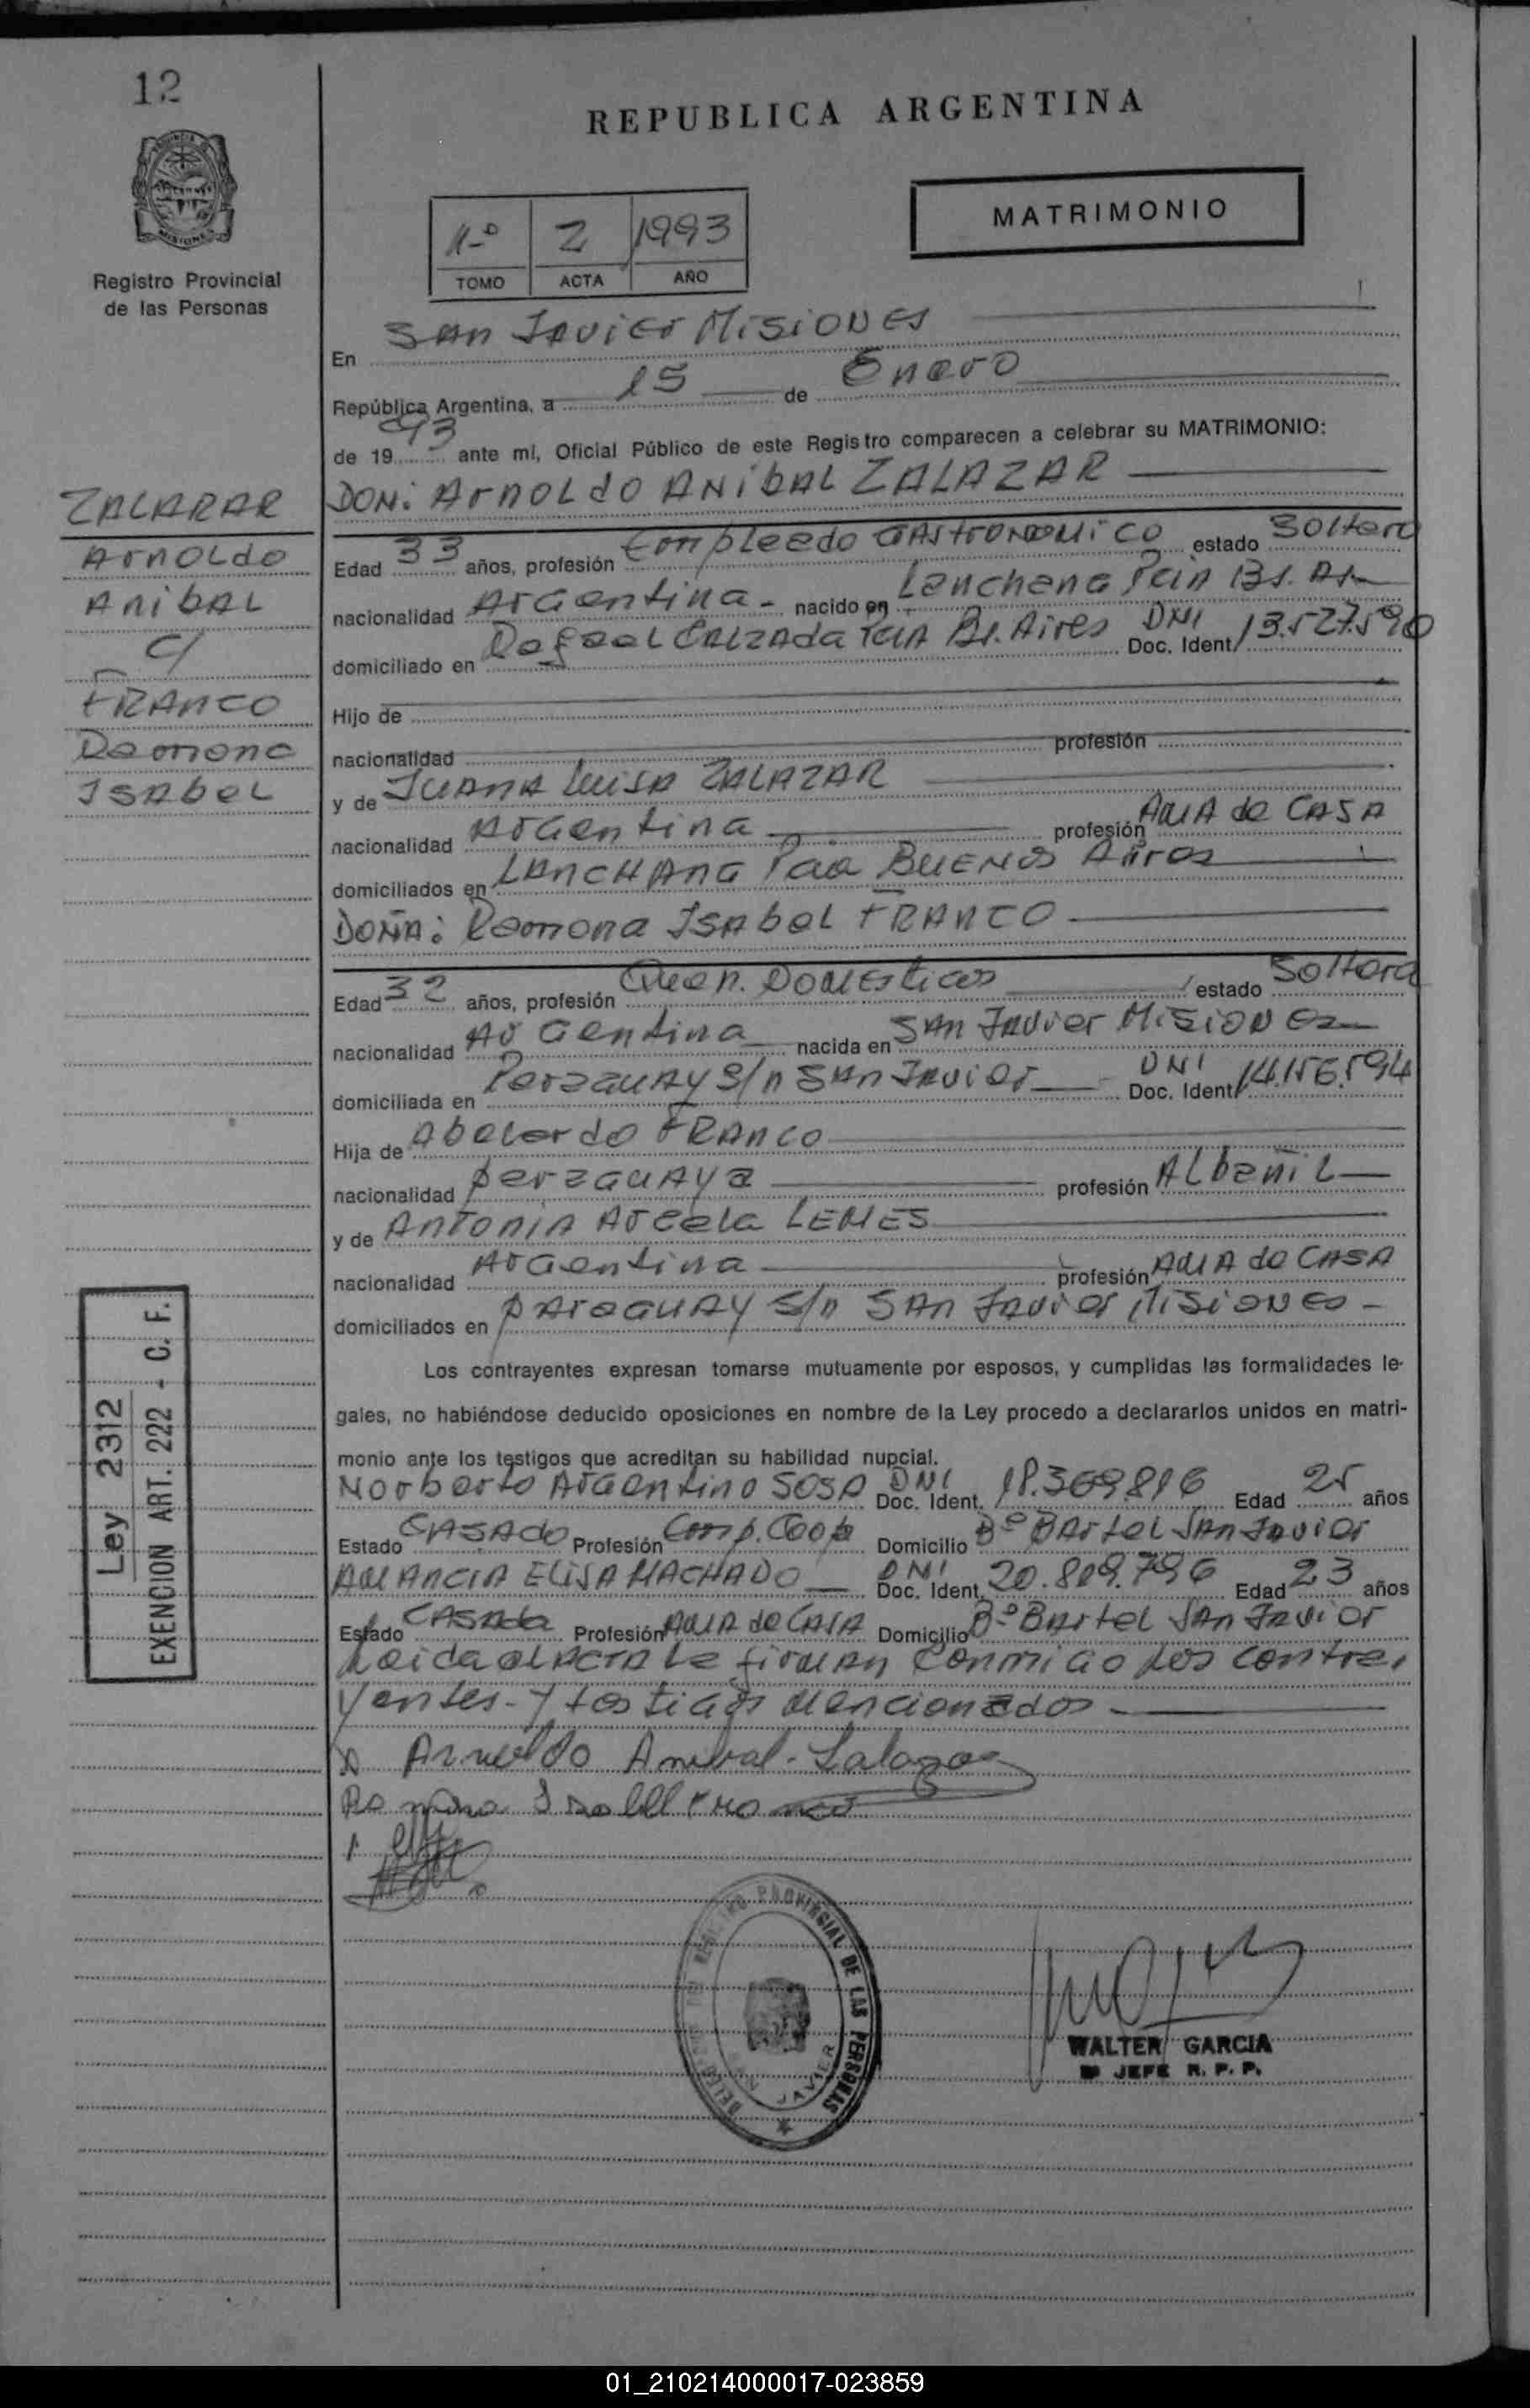 12
REPUBLICA ARGENTINA
MATRIMONIO
1-º 2 1993
TOMO ACTA AÑO
Registro Provincial
de las Personas
En SAN JAVIER MISIONES
República Argentina, a 15 de Enero
de 1993 ante mí, Oficial Público de este Registro comparecen a celebrar su MATRIMONIO:
ZALARAR
Arnoldo
Anibal
c/
FRANCO
Ramona
Isabel
DON: Arnoldo Anibal ZALAZAR
Edad 33 años, profesión Empleado Gastronomico estado Soltero
nacionalidad Argentina - nacido en Pcia Bs. As
domiciliado en Rafael Calzada Pcia Bs. Aires DNI Doc. Ident. 13.527.590
Hijo de
nacionalidad profesión
y de JUANA Luisa ZALAZAR
nacionalidad Argentina profesión AMA de CASA
domiciliados en Pcia BUENOS Aires
DOÑA: Ramona Isabel FRANCO
Edad 32 años, profesión Domesticos estado Soltera
nacionalidad Argentina nacida en SAN Javier MISIONES
domiciliada en Paraguay s/n SAN Javier DNI Doc. Ident. 14.156.594
Hija de Abelardo FRANCO
nacionalidad paraguaya profesión Albañil
y de ANTONIA LEMES
nacionalidad Argentina profesión AMA de CASA
domiciliados en paraguay s/n SAN Javier Misiones -
Los contrayentes expresan tomarse mutuamente por esposos, y cumplidas las formalidades le-
gales, no habiéndose deducido oposiciones en nombre de la Ley procedo a declararlos unidos en matri-
monio ante los testigos que acreditan su habilidad nupcial.
Norberto Argentino SOSA DNI Doc. Ident. 18.369.816 Edad 25 años
Estado CASADO Profesión Emp. Coop Domicilio Bº Bartel San Javier
AMANCIA ELISA MACHADO DNI Doc. Ident. 20.809.796 Edad 23 años
Estado CASADA Profesión AMA de CASA Domicilio Bº Bartel San Javier
Leida el ACTA la firman conmigo los contra-
yentes - y testigos mencionados
Arnoldo Anibal Salazar
Ramona Isabel Franco
Ley 2312
EXENCION ART. 222 - C. F.
REGISTRO PROVINCIAL DE LAS PERSONAS
SAN JAVIER
WALTER GARCIA
JEFE R. P. P.
01_210214000017-023859